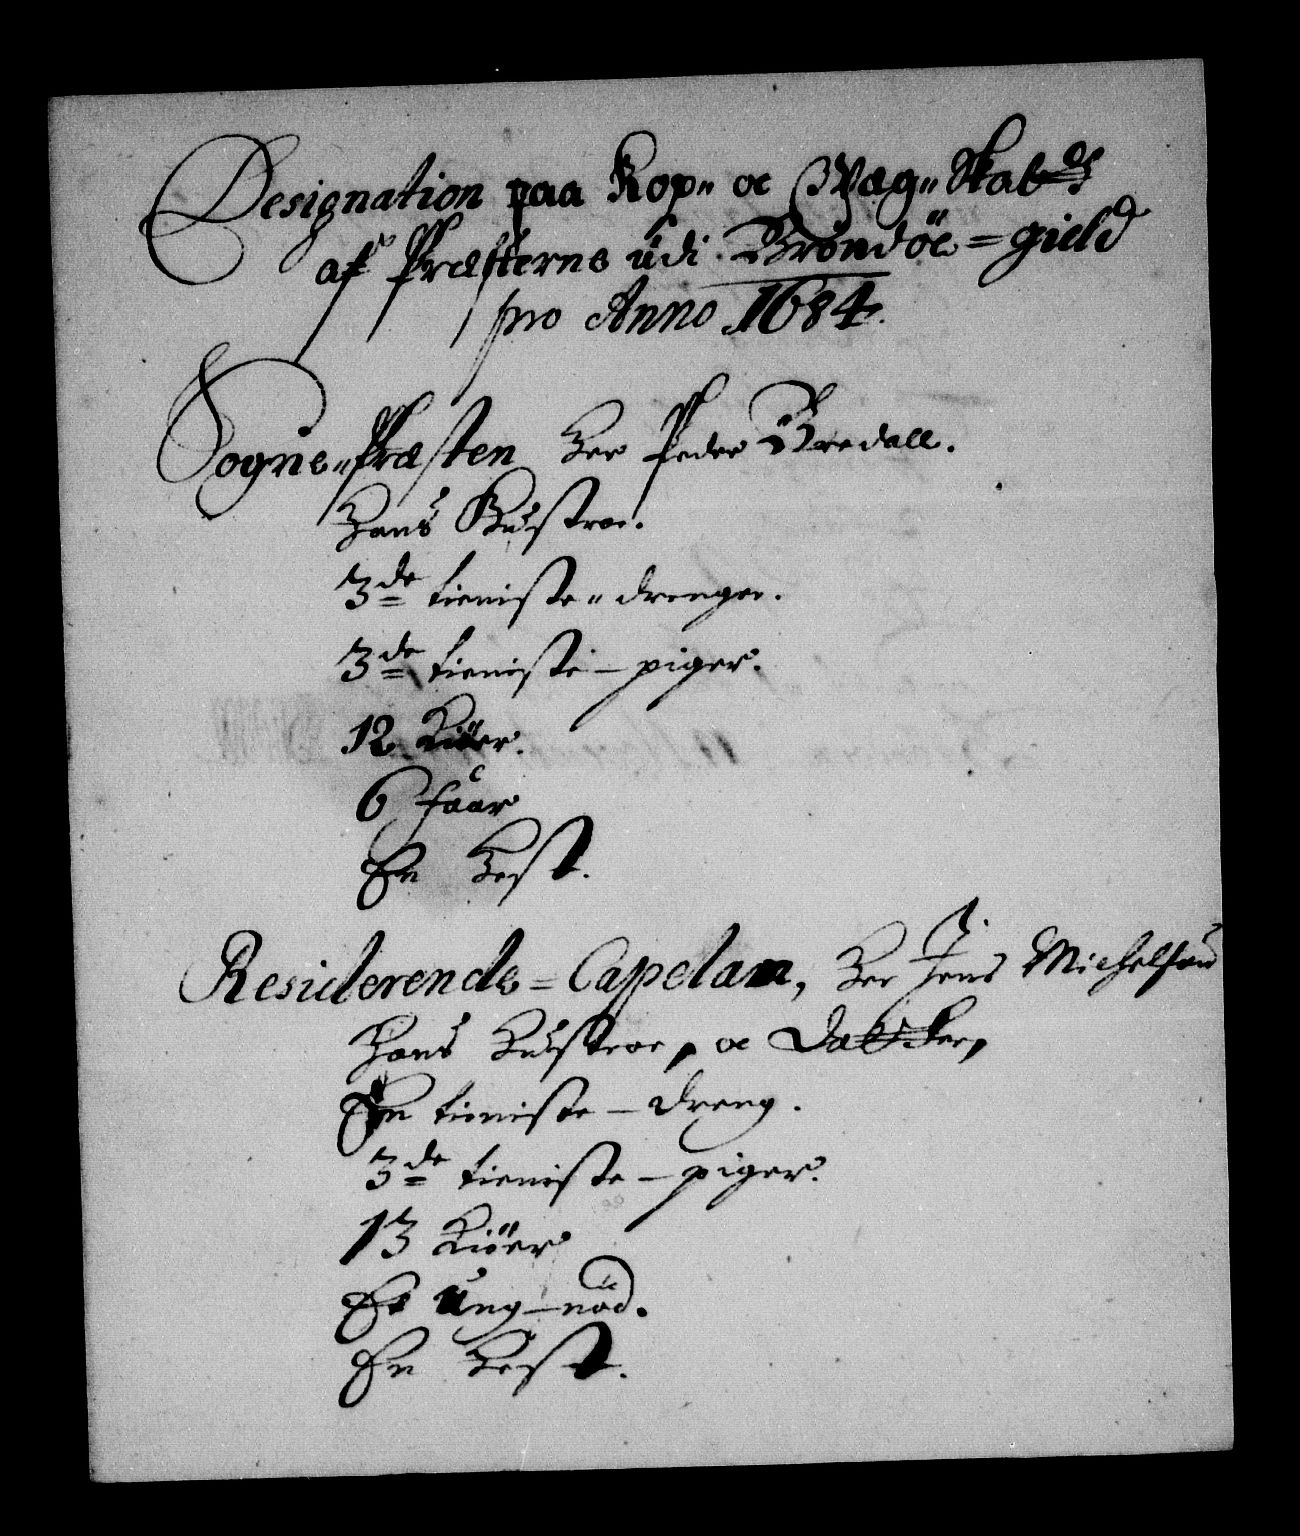 Designation paa Kop„ oc Qvæg„Skatt
af Præsterne üdi Brönöe=gield
pro Anno 1684.
Sogne„Præsten Her Peder Bredall.
Hans Hustroe.
3de tieniste„drenge.
3de tieniste–piger.
12 Kiöer.
6 faar
En Hest.
Residerende=Capelan, Her Jens Michelsøn
Hans Hustroe, oc Datter,
En tieniste–dreng.
3de tieniste–piger.
13 Kiöer
Et Ung–nöd.
En Hest.